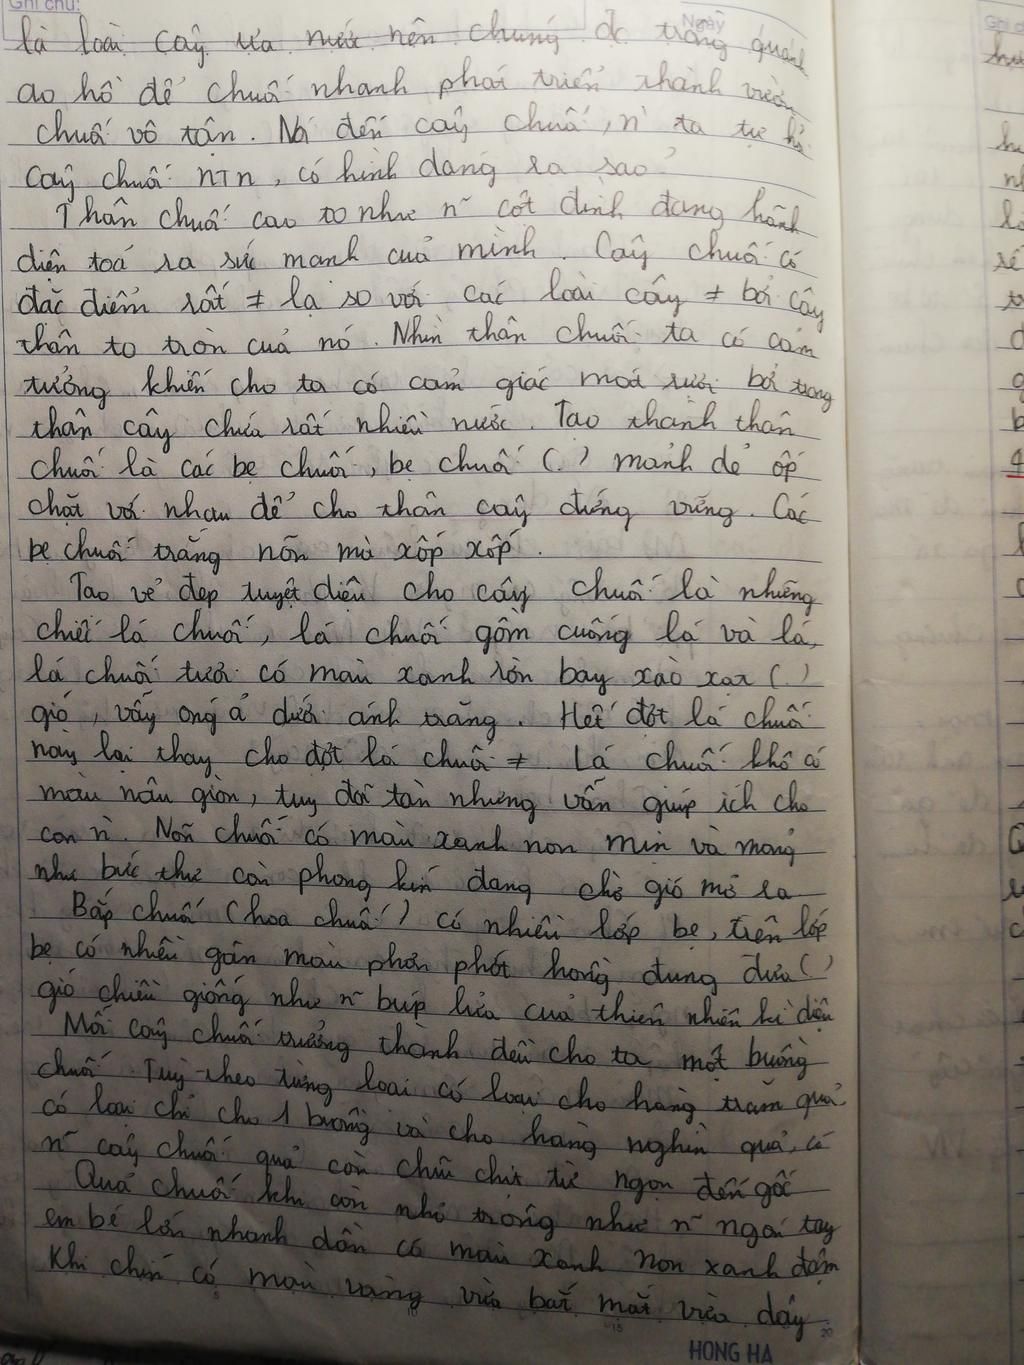 Ghi chú:
Ngày
là loài cây ưa nước nên chúng đc trồng quanh
ao hồ để chuối nhanh phát triển thành vườn
chuối vô tận. Nói đến cây chuối, ta tự hỏi
cây chuối NTN, có hình dạng ra sao?
Thân chuối cao to như cột đình đang hãnh
diện toả ra sức mạnh của mình. Cây chuối có
đặc điểm rất ≠ lạ so với các loài cây ≠ bởi cây
thân to tròn của nó. Nhìn thân chuối ta có cảm
tưởng khiến cho ta có cảm giác mát rượi bởi trong
thân cây chứa rất nhiều nước. Tạo thành thân
chuối là các bẹ chuối, bẹ chuối (.) mảnh dẻ ốp
chặt với nhau để cho thân cây đứng vững. Các
bẹ chuối trắng nõn mà xốp xốp.
Tạo vẻ đẹp tuyệt diệu cho cây chuối là những
chiếc lá chuối, lá chuối gồm cuống lá và lá,
lá chuối tươi có màu xanh rờn bay xào xạc (.)
gió, vẫy óng ả dưới ánh trăng. Hết đợt lá chuối
này lại thay cho đợt lá chuối ≠. Lá chuối khô có
màu nâu giòn, tuy đời tàn nhưng vẫn giúp ích cho
con n. Nõn chuối có màu xanh non mịn và mỏng
như bức thư còn phong kín đang chờ gió mở ra
Bắp chuối (hoa chuối) có nhiều lớp bẹ, trên lớp
bẹ có nhiều gân màu phơn phớt hồng đung đưa (.)
gió chiều giống như búp lửa của thiên nhiên kì diệu
Mỗi cây chuối trưởng thành đều cho ta một buồng
chuối. Tuỳ theo từng loại có loại cho hàng trăm quả
có loại chỉ cho 1 buồng và cho hàng nghìn quả, có
cây chuối quả còn chĩu chịt từ ngọn đến gốc
Quả chuối khi còn nhỏ trông như ngón tay
em bé lớn nhanh dần có màu xanh non xanh đậm
Khi chín có màu vàng vừa bắt mắt vừa dậy
5
10
15
20
HONG HA